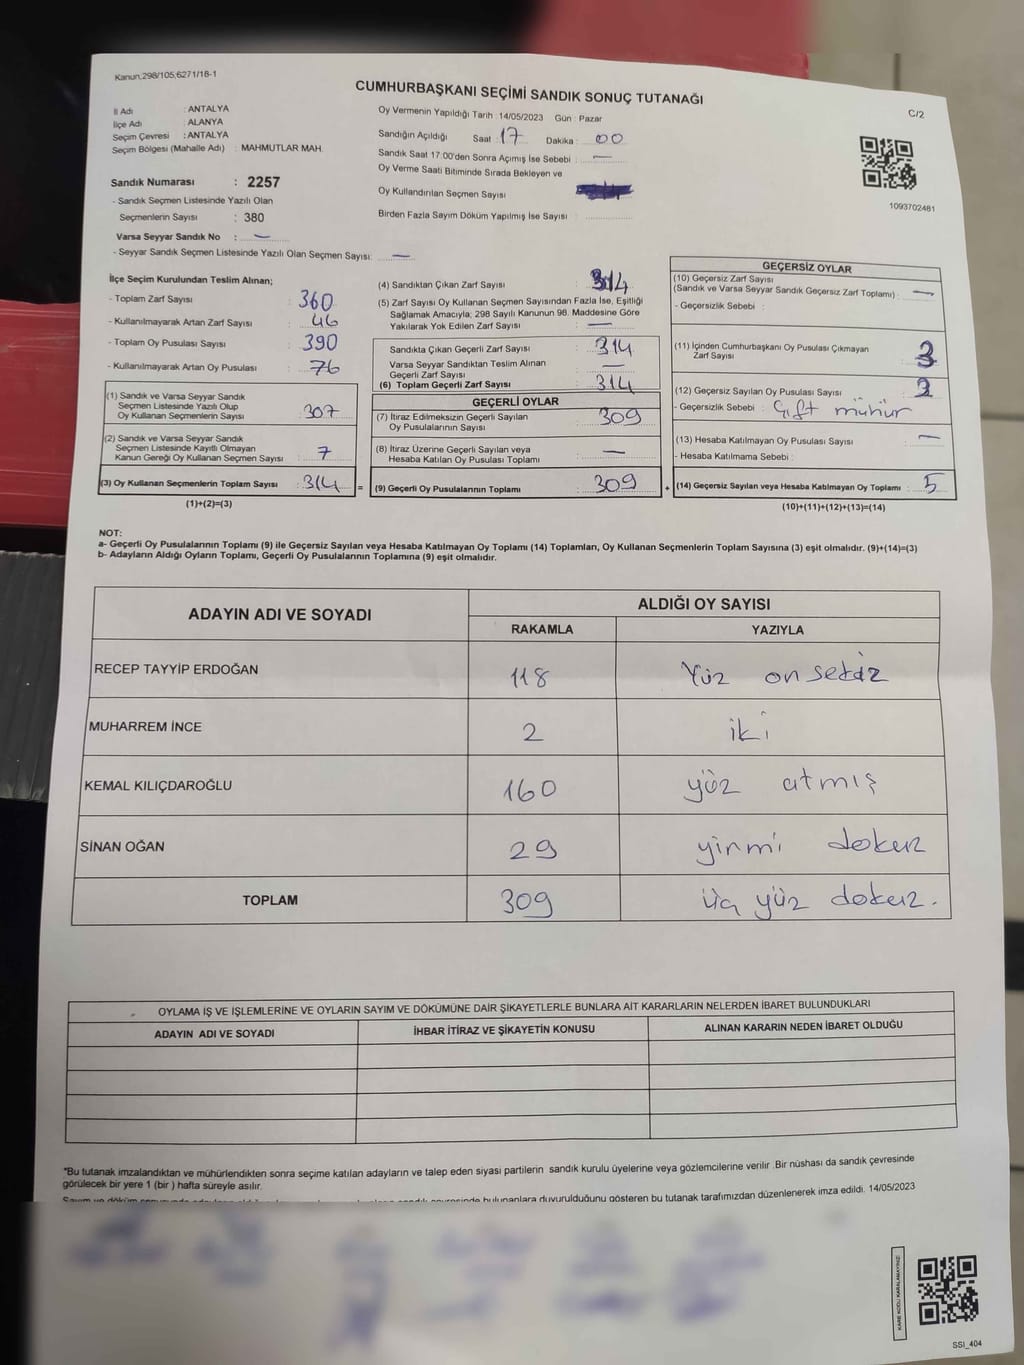 Kanun:298/105;6271/16-1
CUMHURBAŞKANI SEÇİMİ SANDIK SONUÇ TUTANAĞI
C/2
İl Adı : ANTALYA
İlçe Adı : ALANYA
Seçim Çevresi : ANTALYA
Seçim Bölgesi (Mahalle Adı) : MAHMUTLAR MAH.
Sandık Numarası : 2257
- Sandık Seçmen Listesinde Yazılı Olan
Seçmenlerin Sayısı : 380
Varsa Seyyar Sandık No : —
- Seyyar Sandık Seçmen Listesinde Yazılı Olan Seçmen Sayısı: —
Oy Vermenin Yapıldığı Tarih :14/05/2023 Gün : Pazar
Sandığın Açıldığı Saat : 17 Dakika : 00
Sandık Saat 17.00'den Sonra Açımış İse Sebebi : —
Oy Verme Saati Bitiminde Sırada Bekleyen ve
Oy Kullandırılan Seçmen Sayısı
Birden Fazla Sayım Döküm Yapılmış İse Sayısı :
1093702481
İlçe Seçim Kurulundan Teslim Alınan;
- Toplam Zarf Sayısı : 360
- Kullanılmayarak Artan Zarf Sayısı : 46
- Toplam Oy Pusulası Sayısı : 390
- Kullanılmayarak Artan Oy Pusulası : 76
(1) Sandık ve Varsa Seyyar Sandık
Seçmen Listesinde Yazılı Olup
Oy Kullanan Seçmenlerin Sayısı : 307
(2) Sandık ve Varsa Seyyar Sandık
Seçmen Listesinde Kayıtlı Olmayan
Kanun Gereği Oy Kullanan Seçmen Sayısı : 7
(3) Oy Kullanan Seçmenlerin Toplam Sayısı : 314 =
(1)+(2)=(3)
(4) Sandıktan Çıkan Zarf Sayısı : 314
(5) Zarf Sayısı Oy Kullanan Seçmen Sayısından Fazla İse, Eşitliği
Sağlamak Amacıyla; 298 Sayılı Kanunun 98. Maddesine Göre
Yakılarak Yok Edilen Zarf Sayısı : —
Sandıkta Çıkan Geçerli Zarf Sayısı : 314
Varsa Seyyar Sandıktan Teslim Alınan
Geçerli Zarf Sayısı : —
(6) Toplam Geçerli Zarf Sayısı : 314
GEÇERLİ OYLAR
(7) İtiraz Edilmeksizin Geçerli Sayılan
Oy Pusulalarının Sayısı : 309
(8) İtiraz Üzerine Geçerli Sayılan veya
Hesaba Katılan Oy Pusulası Toplamı : —
(9) Geçerli Oy Pusulalarının Toplamı : 309 +
GEÇERSİZ OYLAR
(10) Geçersiz Zarf Sayısı
(Sandık ve Varsa Seyyar Sandık Geçersiz Zarf Toplamı) : —
- Geçersizlik Sebebi :
(11) İçinden Cumhurbaşkanı Oy Pusulası Çıkmayan
Zarf Sayısı : 3
(12) Geçersiz Sayılan Oy Pusulası Sayısı : 2
- Geçersizlik Sebebi : Çift mühür
(13) Hesaba Katılmayan Oy Pusulası Sayısı : —
- Hesaba Katılmama Sebebi :
(14) Geçersiz Sayılan veya Hesaba Katılmayan Oy Toplamı : 5
(10)+(11)+(12)+(13)=(14)
NOT:
a- Geçerli Oy Pusulalarının Toplamı (9) ile Geçersiz Sayılan veya Hesaba Katılmayan Oy Toplamı (14) Toplamları, Oy Kullanan Seçmenlerin Toplam Sayısına (3) eşit olmalıdır. (9)+(14)=(3)
b- Adayların Aldığı Oyların Toplamı, Geçerli Oy Pusulalarının Toplamına (9) eşit olmalıdır.
ADAYIN ADI VE SOYADI ALDIĞI OY SAYISI
RAKAMLA YAZIYLA
RECEP TAYYİP ERDOĞAN 118 Yüz on sekiz
MUHARREM İNCE 2 iki
KEMAL KILIÇDAROĞLU 160 yüz atmış
SİNAN OĞAN 29 yirmi dokuz
TOPLAM 309 üç yüz dokuz.
OYLAMA İŞ VE İŞLEMLERİNE VE OYLARIN SAYIM VE DÖKÜMÜNE DAİR ŞİKAYETLERLE BUNLARA AİT KARARLARIN NELERDEN İBARET BULUNDUKLARI
ADAYIN ADI VE SOYADI İHBAR İTİRAZ VE ŞİKAYETİN KONUSU ALINAN KARARIN NEDEN İBARET OLDUĞU
*Bu tutanak imzalandıktan ve mühürlendikten sonra seçime katılan adayların ve talep eden siyasi partilerin sandık kurulu üyelerine veya gözlemcilerine verilir .Bir nüshası da sandık çevresinde
görülecek bir yere 1 (bir ) hafta süreyle asılır.
bulunanlara duyurulduğunu gösteren bu tutanak tarafımızdan düzenlenerek imza edildi. 14/05/2023
KARE KODU KARALAMAYINIZ!
SSI_404